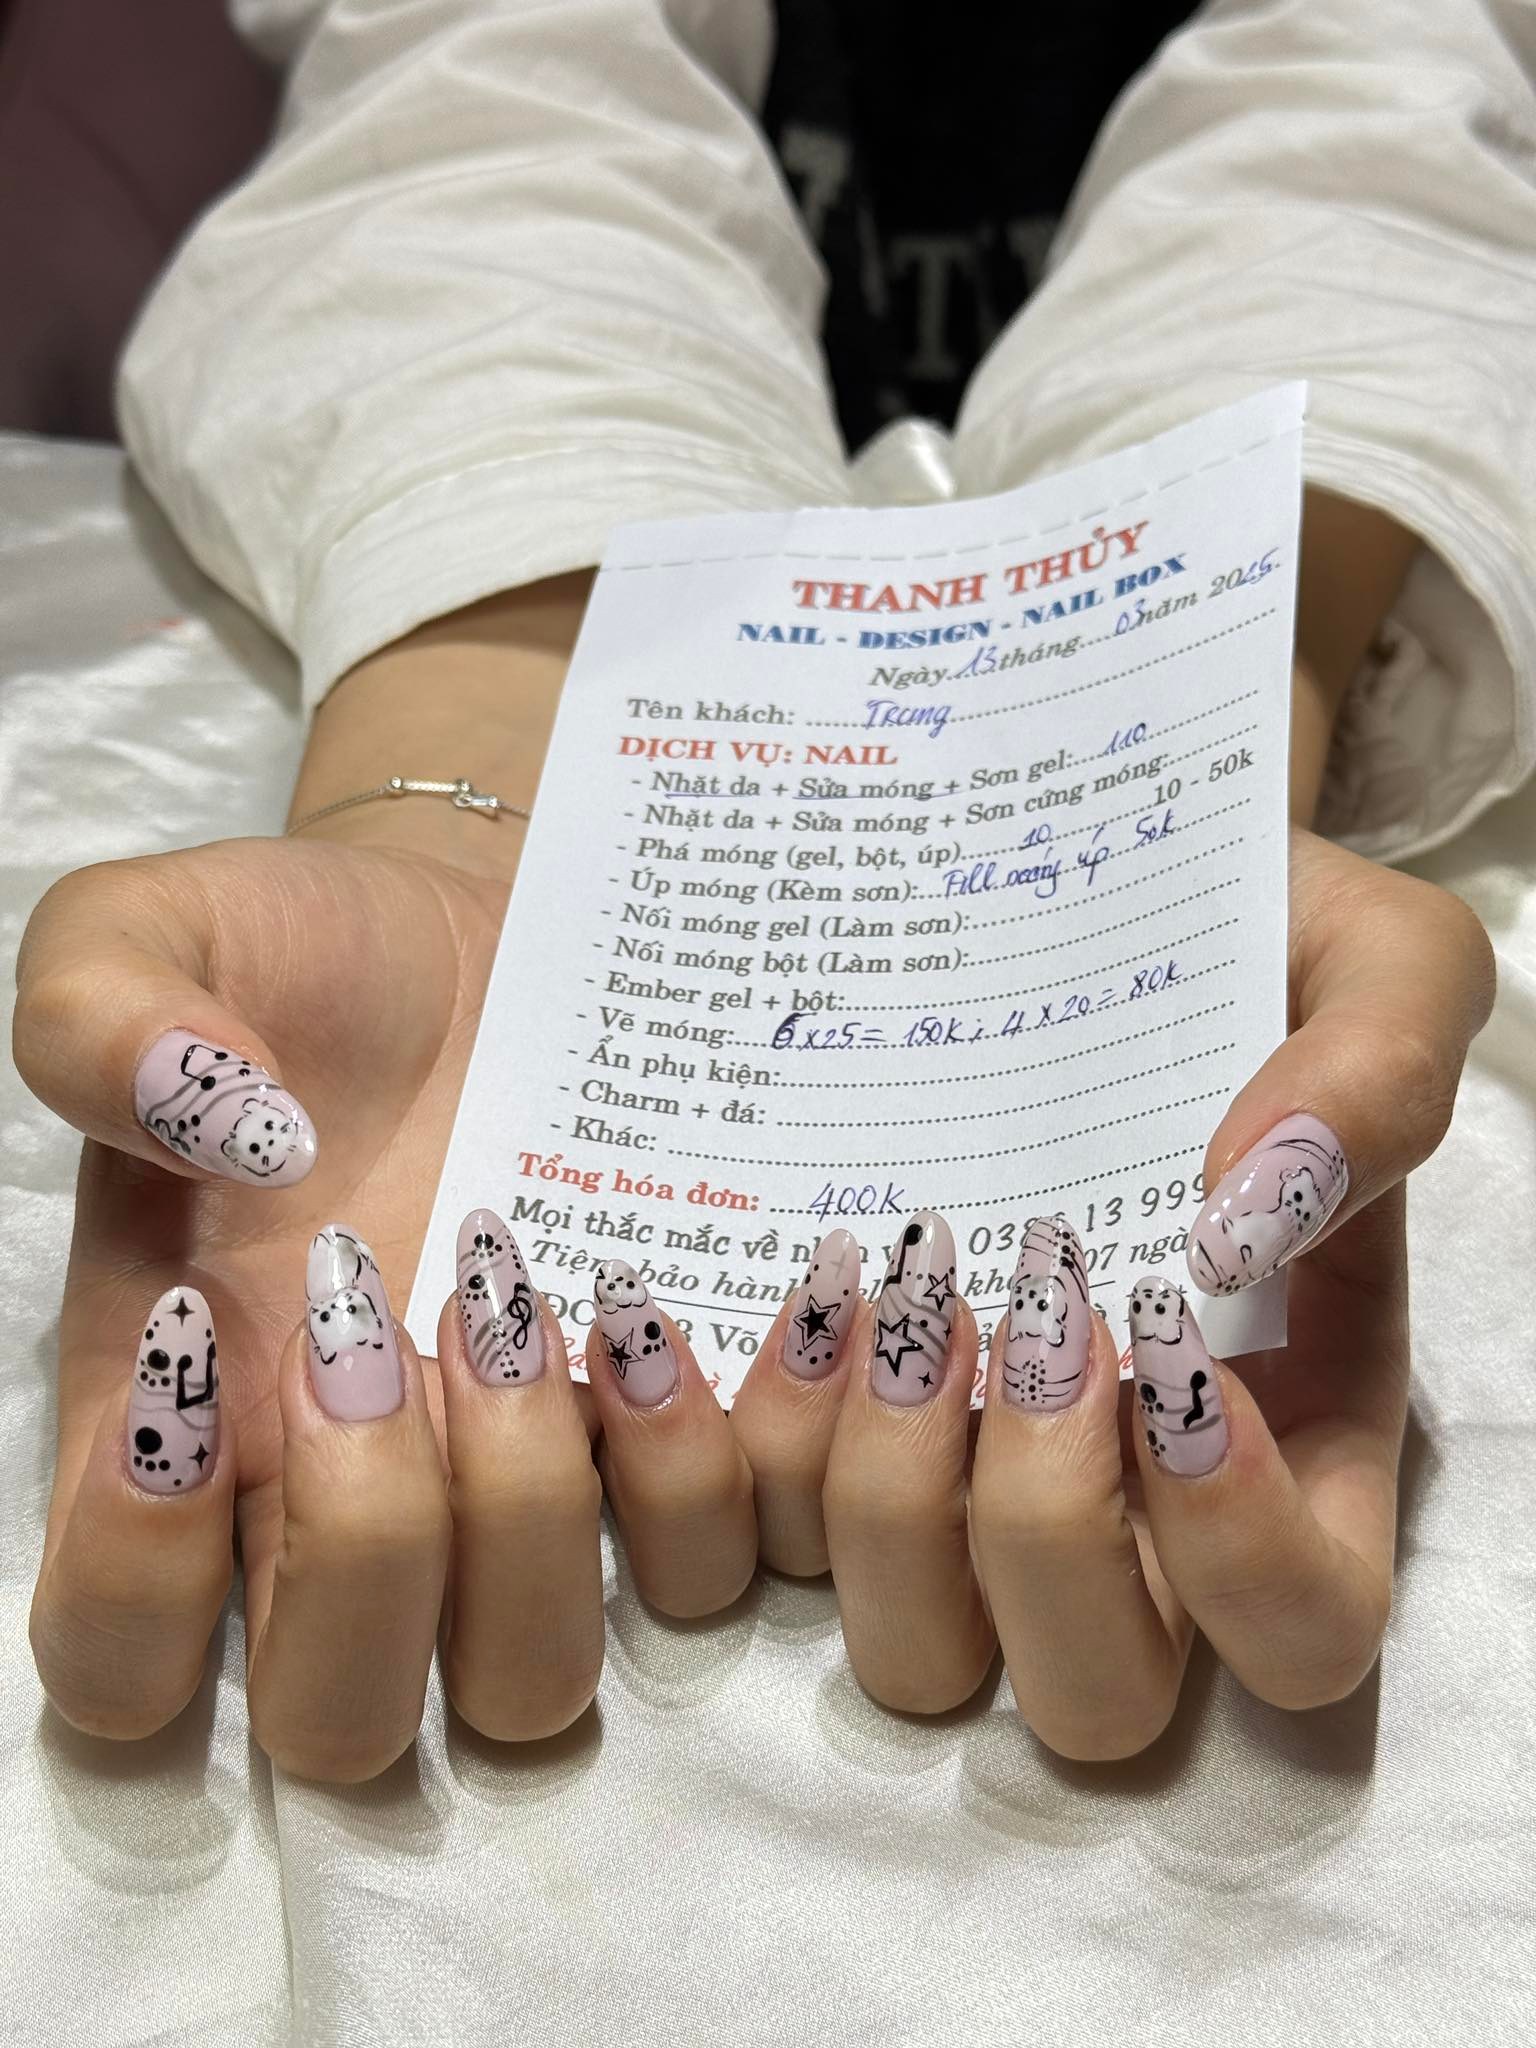 THANH THỦY
NAIL - DESIGN - NAIL BOX
Ngày 13 tháng 03 năm 2025
Tên khách: Trang
DỊCH VỤ: NAIL
- Nhặt da + Sửa móng + Sơn gel: 110
- Nhặt da + Sửa móng + Sơn cứng móng:
- Phá móng (gel, bột, úp) 10 10 - 50k
- Úp móng (Kèm sơn): Fill móng úp 50k
- Nối móng gel (Làm sơn):
- Nối móng bột (Làm sơn):
- Ember gel + bột:
- Vẽ móng: 6 x 25 = 150k ; 4 x 20 = 80k
- Ẩn phụ kiện:
- Charm + đá:
- Khác:
Tổng hóa đơn: 400K
Mọi thắc mắc về 13 999
bảo hành 07
Võ